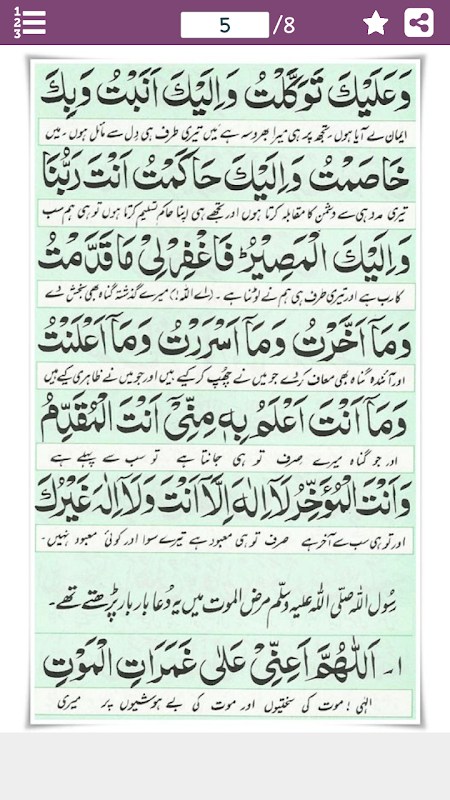 5 /8
وَعَلَيْكَ تَوَكَّلْتُ وَاِلَيْكَ اَنَبْتُ وَبِكَ
ایمان لے آیا ہوں۔ تجھ پر ہی میرا بھروسہ ہے میں تیری طرف ہی دِل سے مائل ہوں۔ میں
خَاصَمْتُ وَاِلَيْكَ حَاكَمْتُ اَنْتَ رَبُّنَا
تیری مدد ہی سے دشمن کا مقابلہ کرتا ہوں اور تجھے ہی اپنا حاکم تسلیم کرتا ہوں تو ہی ہم سب
وَاِلَيْكَ الْمَصِيْرُ فَاغْفِرْلِیْ مَاقَدَّمْتُ
کا رب ہے اور تیری طرف ہی ہم نے لوٹنا ہے۔ (اے اللہ!) میرے گذشتہ گناہ بھی بخش دے
وَمَآ اَخَّرْتُ وَمَآ اَسْرَرْتُ وَمَآ اَعْلَنْتُ
اور آئندہ گناہ بھی معاف کر دے جو میں نے چھپ کر کیے ہیں اور جو میں نے ظاہری کیے ہیں
وَمَآ اَنْتَ اَعْلَمُ بِهٖ مِنِّیْ اَنْتَ الْمُقَدِّمُ
اور جو گناہ میرے صِرف تو ہی جانتا ہے تو سب سے پہلے ہے
وَاَنْتَ الْمُؤَخِّرُ لَآ اِلٰهَ اِلَّا اَنْتَ وَلَا اِلٰهَ غَيْرُكَ
اور تو ہی سب سے آخر ہے صرف تو ہی معبود ہے تیرے سوا اور کوئی معبود نہیں۔
رسُول اللہ صلی اللہ علیہ وسلّم مرض الموت میں یہ دُعا بار بار پڑھتے تھے۔
١۔ اَللّٰهُمَّ اَعِنِّیْ عَلٰی غَمَرَاتِ الْمَوْتِ
الٰہی! موت کی سختیوں اور موت کی بے ہوشیوں پر میری